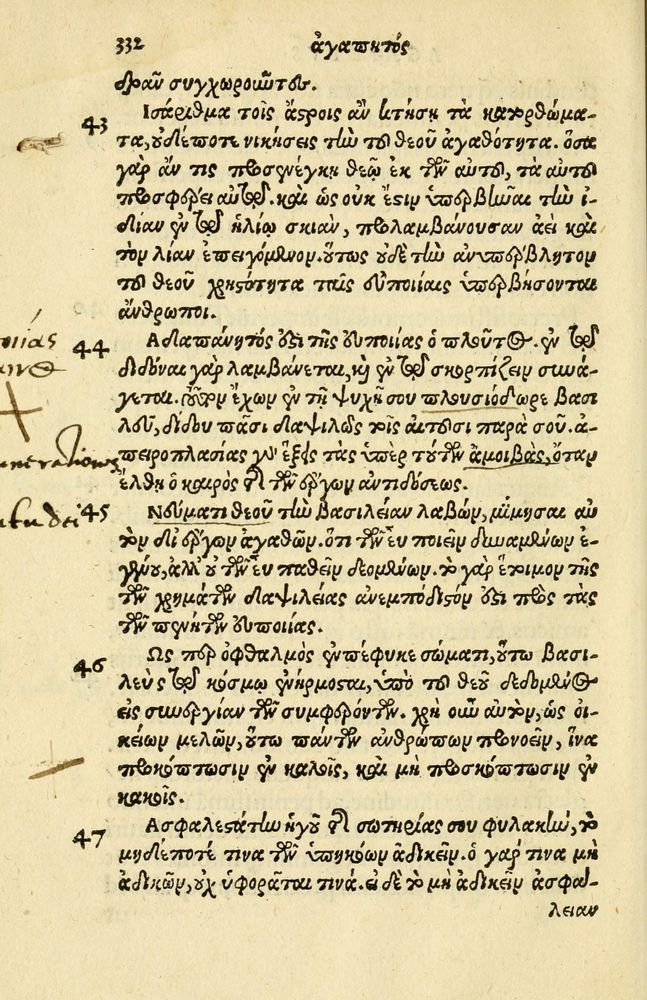 332 ἀγαπητός
δρᾶν συγχωροῦντες.
43 Ισάριθμα τοῖς ἄστροις ἂν κτήσῃ τὰ κατορθώμα-
τα, οὐδέποτε νικήσεις τὴν τοῦ θεοῦ ἀγαθότητα. ὅσα
γὰρ ἄν τις προσενέγκῃ θεῷ ἐκ τῶν αὐτοῦ, τὰ αὐτοῦ
προσφέρει αὐτῷ. καὶ ὡς οὐκ ἔστιν ὑπερβῆναι τὴν ἰ-
δίαν ἐν τῷ ἡλίῳ σκιὰν, προλαμβάνουσαν ἀεὶ καὶ
τὸν λίαν ἐπειγόμενον. οὕτως οὐδὲ τὴν ἀνυπέρβλητον
τοῦ θεοῦ χρηστότητα ταῖς εὐποιίαις ὑπερβήσονται
ἄνθρωποι.
44 Αδαπάνητός ἐστι τῆς εὐποιίας ὁ πλοῦτος. ἐν τῷ
διδόναι γὰρ λαμβάνεται, καὶ ἐν τῷ σκορπίζειν συνά-
γεται. τοῦτον ἔχων ἐν τῇ ψυχῇ σου πλουσιόδωρε βασι
λεῦ, δίδου πᾶσι δαψιλῶς τοῖς αἰτοῦσι παρὰ σοῦ. ἀ-
πειροπλασίας γὰρ ἕξεις τὰς ὑπὲρ τούτων ἀμοιβὰς, ὅταν
ἔλθῃ ὁ καιρὸς τῆς τῶν ἔργων ἀντιδόσεως.
45 Νεύματι θεοῦ τὴν βασιλείαν λαβὼν, μίμησαι αὐ
τὸν δι' ἔργων ἀγαθῶν. ὅτι τῶν εὖ ποιεῖν δυναμένων ἐ-
γένου, ἀλλ' οὐ τῶν εὖ παθεῖν δεομένων. τὸ γὰρ ἕτοιμον τῆς
τῶν χρημάτων δαψιλείας ἀνεμπόδιστόν ἐστι πρὸς τὰς
τῶν πενήτων εὐποιίας.
46 Ως περ ὀφθαλμὸς ἐμπέφυκε σώματι, οὕτω βασι-
λεὺς τῷ κόσμῳ ἐνήρμοσται, ὑπὸ τοῦ θεοῦ δεδομένος
εἰς συνεργίαν τῶν συμφερόντων. χρὴ οὖν αὐτὸν, ὡς οἰ-
κείων μελῶν, οὕτω πάντων ἀνθρώπων προνοεῖν, ἵνα
προκόπτωσιν ἐν καλοῖς, καὶ μὴ προσκόπτωσιν ἐν
κακοῖς.
47 Ασφαλεστάτην ἡγοῦ τῆς σωτηρίας σου φυλακὴν, τὸ
μηδέποτέ τινα τῶν ὑπηκόων ἀδικεῖν. ὁ γάρ τινα μὴ
ἀδικῶν, οὐχ ὑφορᾶται τινά. εἰ δὲ τὸ μὴ ἀδικεῖν ἀσφά-
λειαν